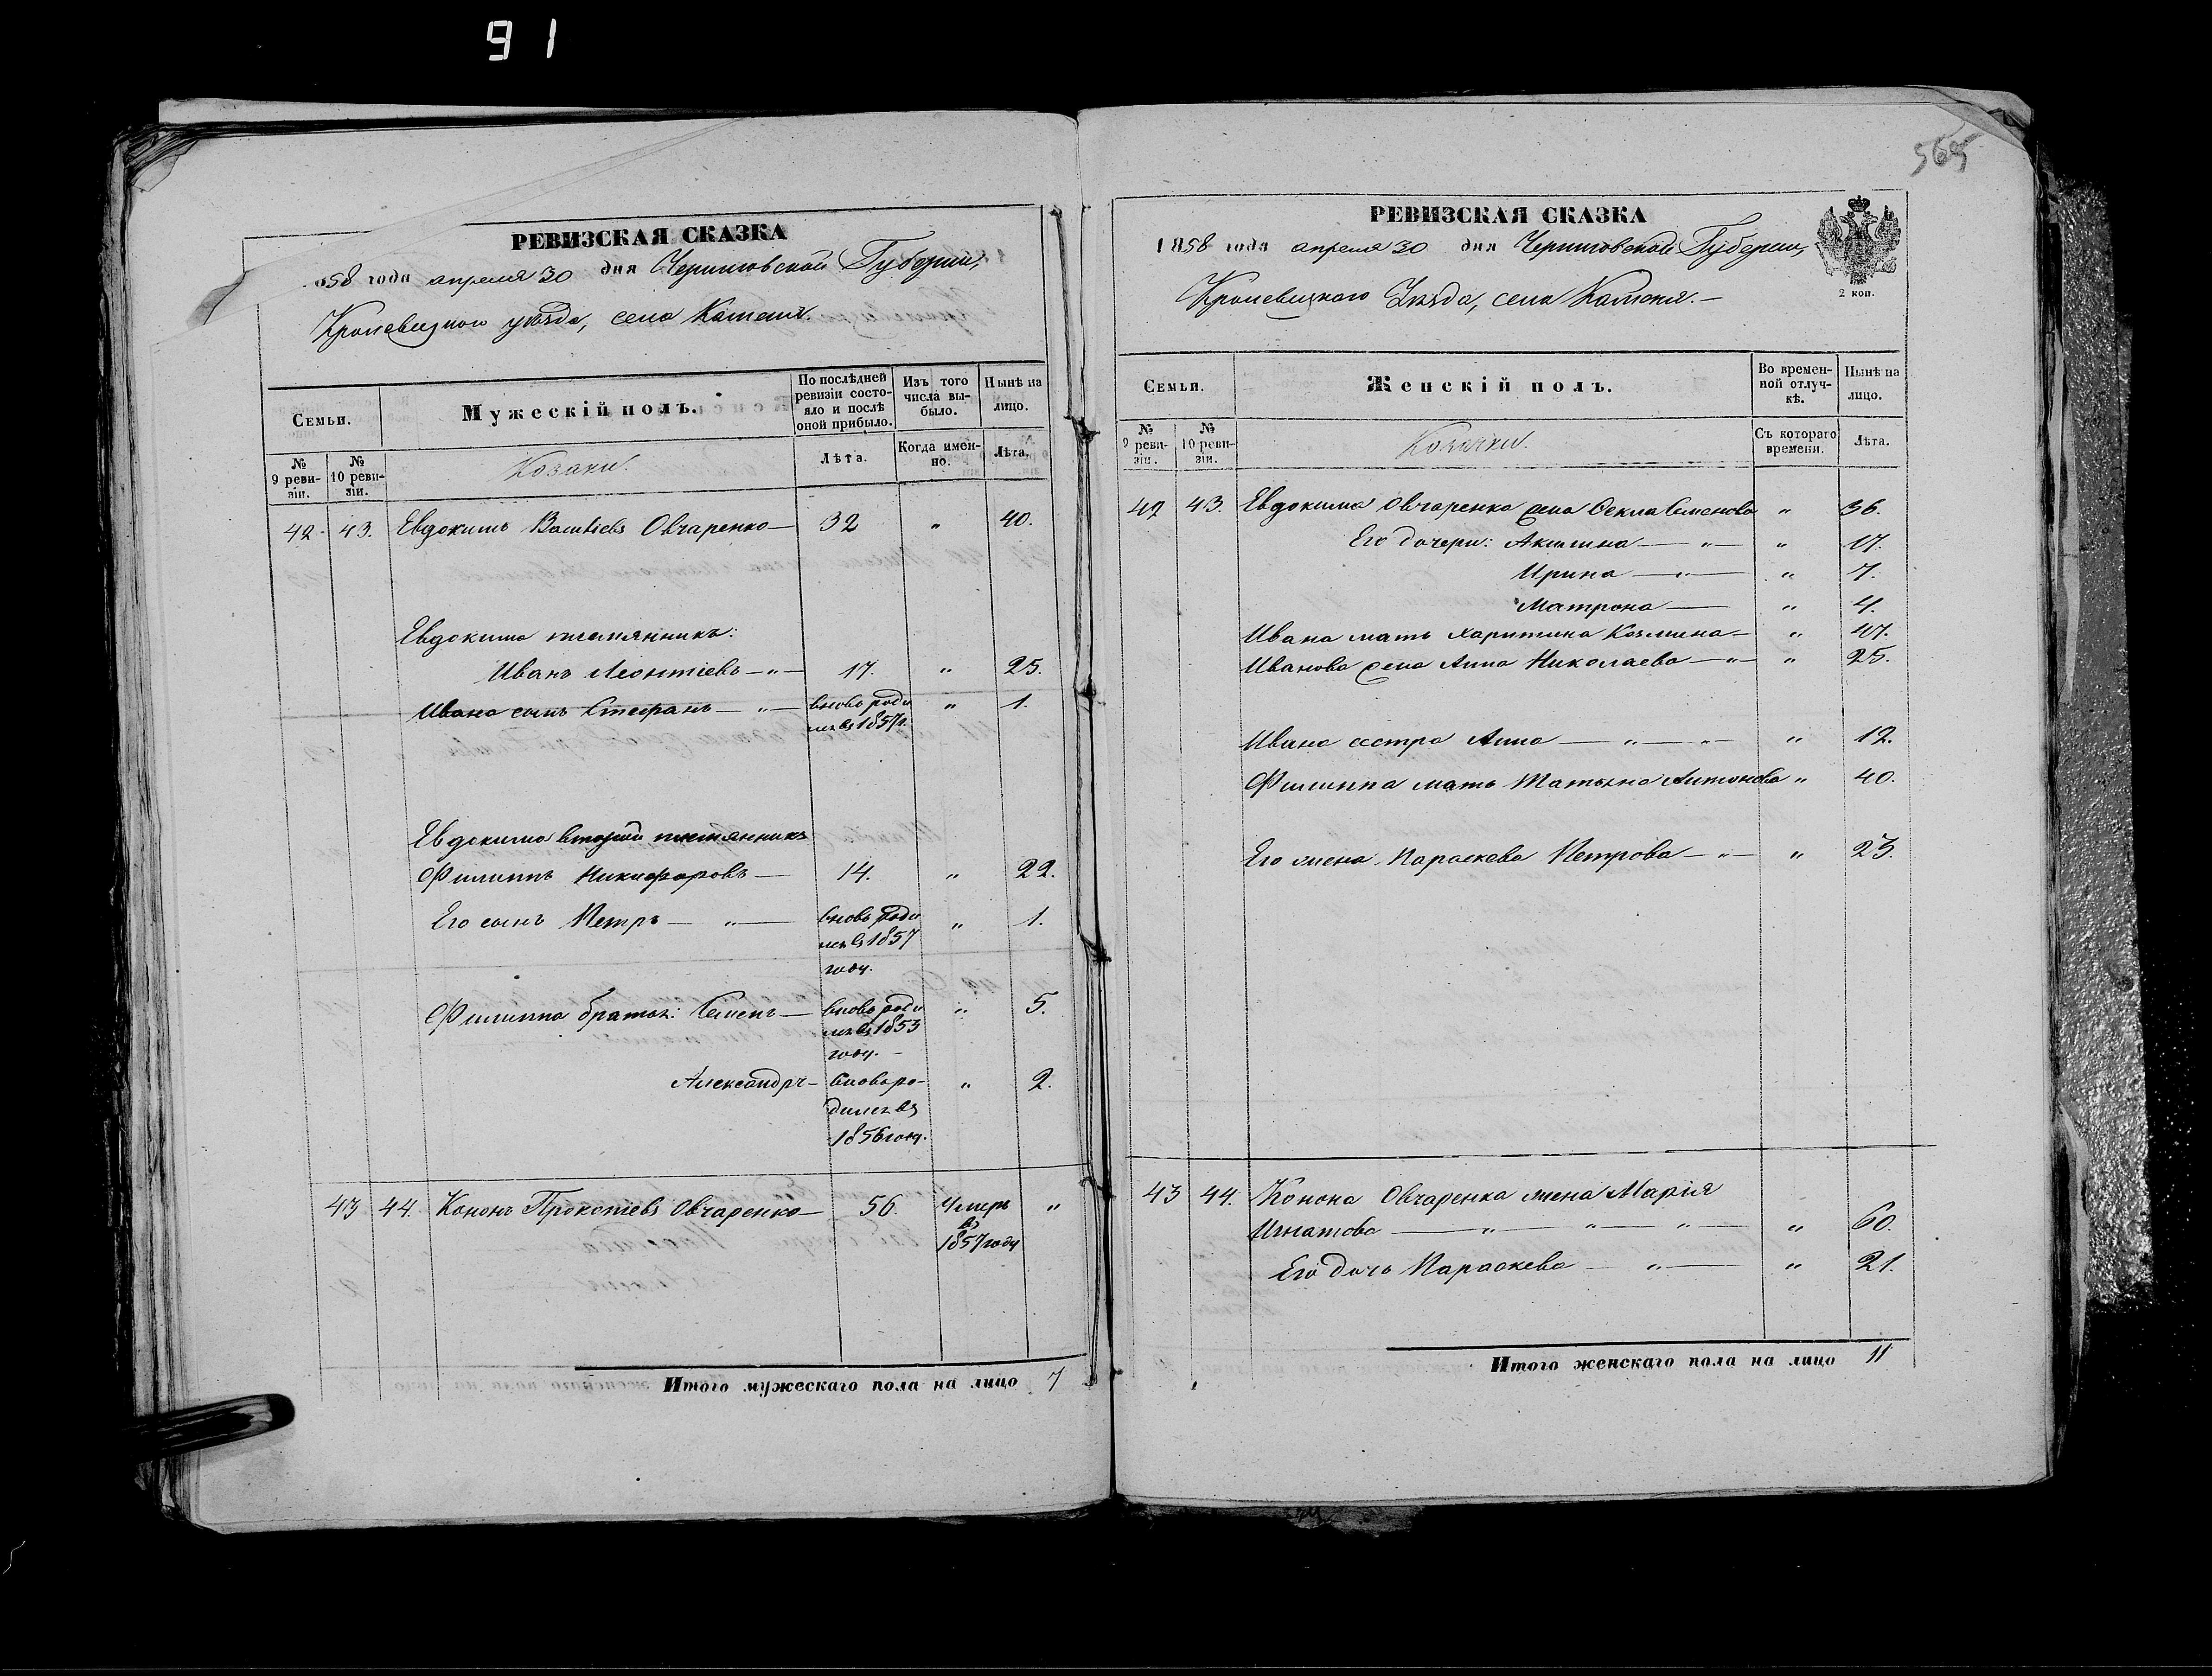 91
РЕВИЗСКАЯ СКАЗКА
858 года апреля 30 дня Черниговской Губерніи,
Кролевецкого уѣзда, села Каменя.
Семьи.
Мужескій полъ.
По послѣдней ревизіи состояло и послѣ оной прибыло.
Изъ того числа выбыло.
Нынѣ на лицо.
№ 9 ревизіи.
№ 10 ревизіи.
Козаки.
Лѣта.
Когда именно.
Лѣта.
42 43. Евдокимъ Овчаренко — 32 " 40.
Евдокима племянникъ:
Иванъ Леонтіевъ — " — 17. " 25.
Ивана сынъ Стефанъ — " — вновь роди " 1.
лся въ 1857 г.
Евдокима второй племянникъ
Филиппъ Никифоровъ — 14. " 22.
Его сынъ Петръ — " — вновь роди " 1.
лся въ 1857
году.
Филиппа братья: Семенъ — вновь роди " 5.
лся въ 1853
году. —
Александръ — вновь ро- " 2.
дился въ
1856 году.
43 44. Кононъ Прокопіевъ Овчаренко — 56. Умеръ "
въ
1857 году
Итого мужескаго пола на лицо 7
565
РЕВИЗСКАЯ СКАЗКА
1858 года апреля 30 дня Черниговской Губерніи,
Кролевецкого Уѣзда, села Каменя. —
2 коп.
Семьи.
Женскій полъ.
Во временной отлучкѣ.
Нынѣ на лицо.
№ 9 ревизіи.
№ 10 ревизіи.
Козачки.
Съ котораго времени.
Лѣта.
42 43. Евдокима Овчаренка жена Фекла Семенова " 36.
Его дочери: Акилина — " — " 17.
Ирина — " — " 7.
Матрона — " 4.
Ивана мать Харитина Козмина — " 47.
Иванова жена Анна Николаева — " — " 25.
Ивана сестра Анна — " — " — " 12.
Филиппа мать Татьяна Антонова " 40.
Его жена Параскева Петрова — " — " 23.
43 44. Конона Овчаренка жена Марія
Игнатова — " — " — " — " 60.
Его дочь Параскева — " — " 21.
Итого женскаго пола на лицо 11